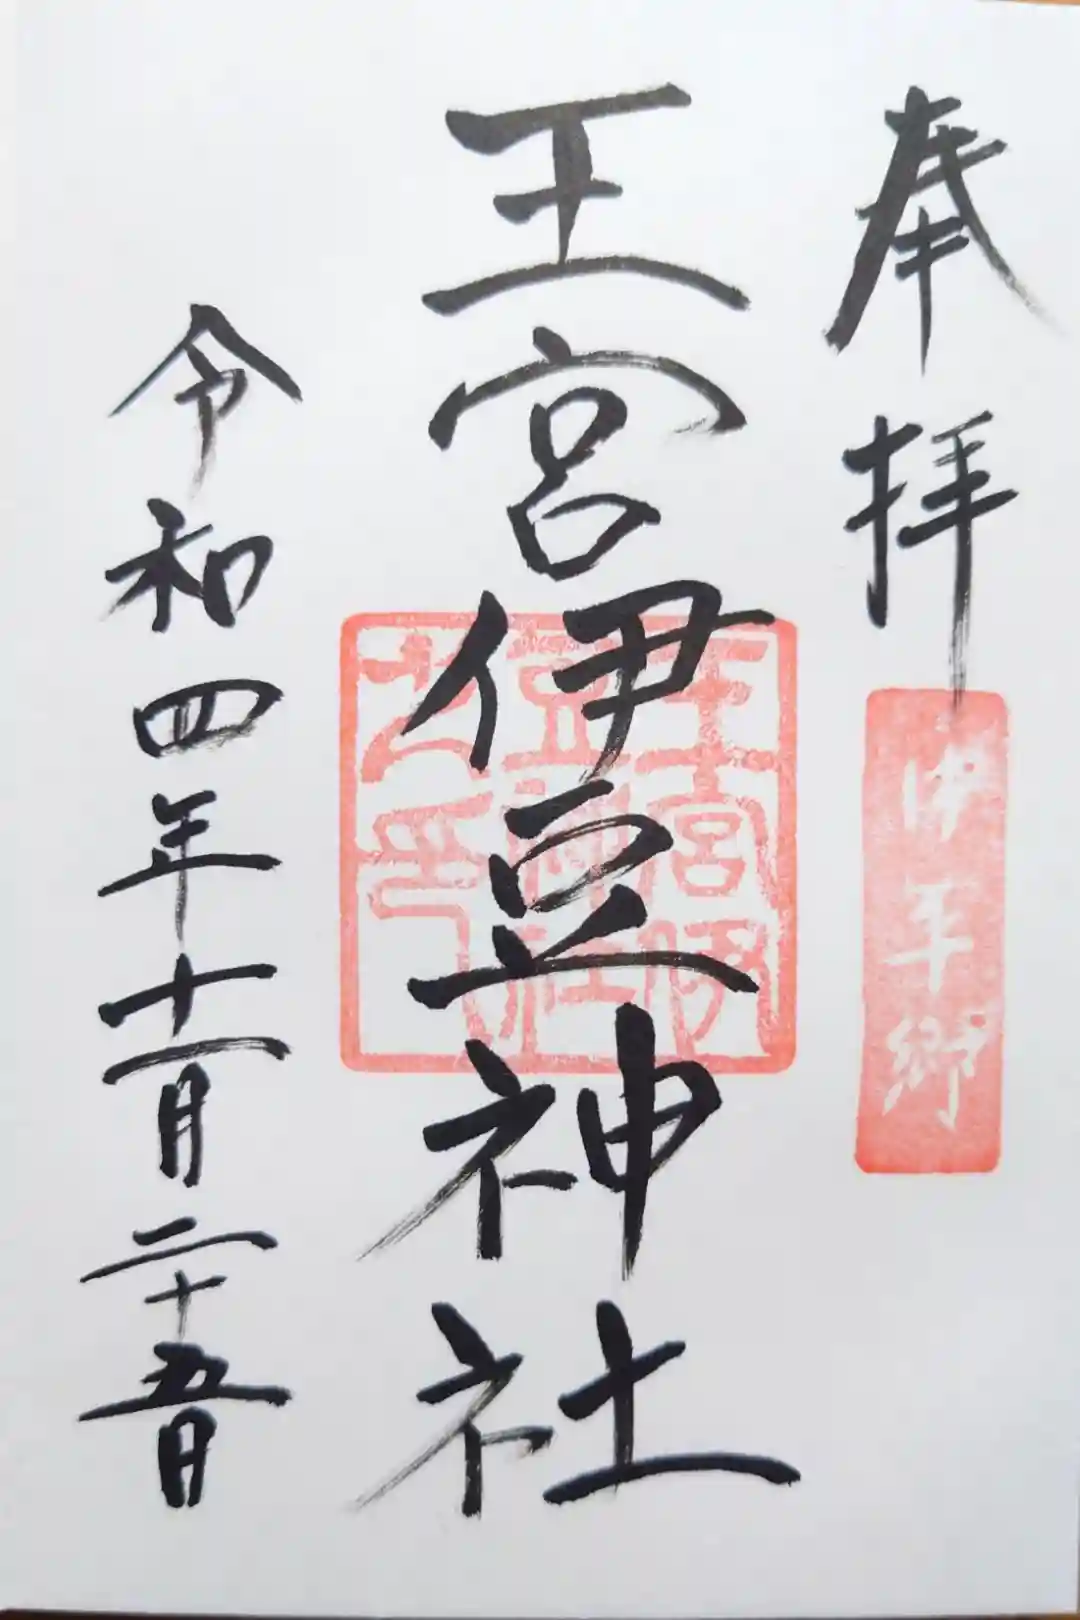 奉拝
王宮伊豆神社
令和四年十一月二十五日
王宮伊
豆神社
之印